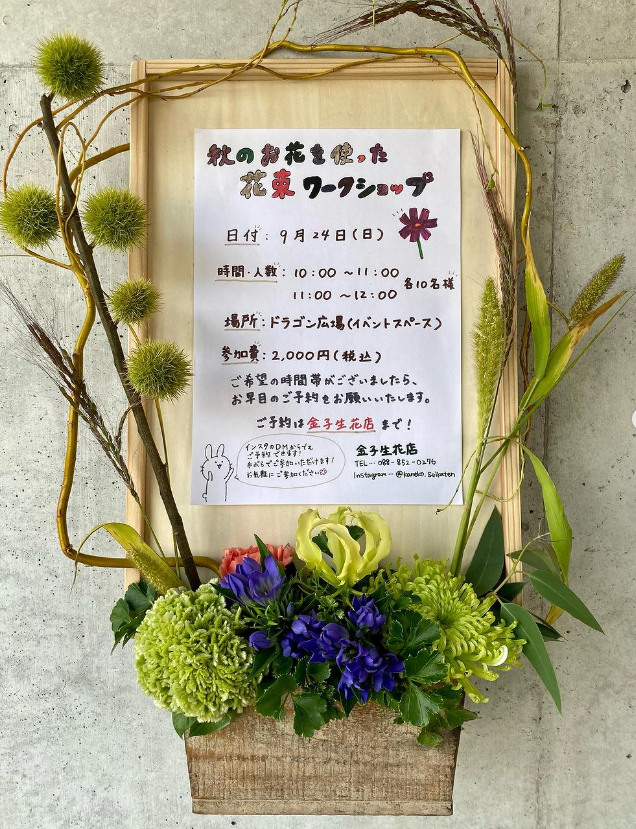 秋のお花を使った
花束ワークショップ
日付：9月24日(日)
時間・人数：10:00～11:00
11:00～12:00
各10名様
場所：ドラゴン広場(イベントスペース)
参加費：2,000円(税込)
ご希望の時間帯がございましたら、
お早目のご予約をお願いいたします。
ご予約は金子生花店まで！
インスタのDMからでも
ご予約できます！
手ぶらでご参加いただけます！
お気軽にご参加ください
金子生花店
TEL…088-852-0246
Instagram…@kaneko.seikaten